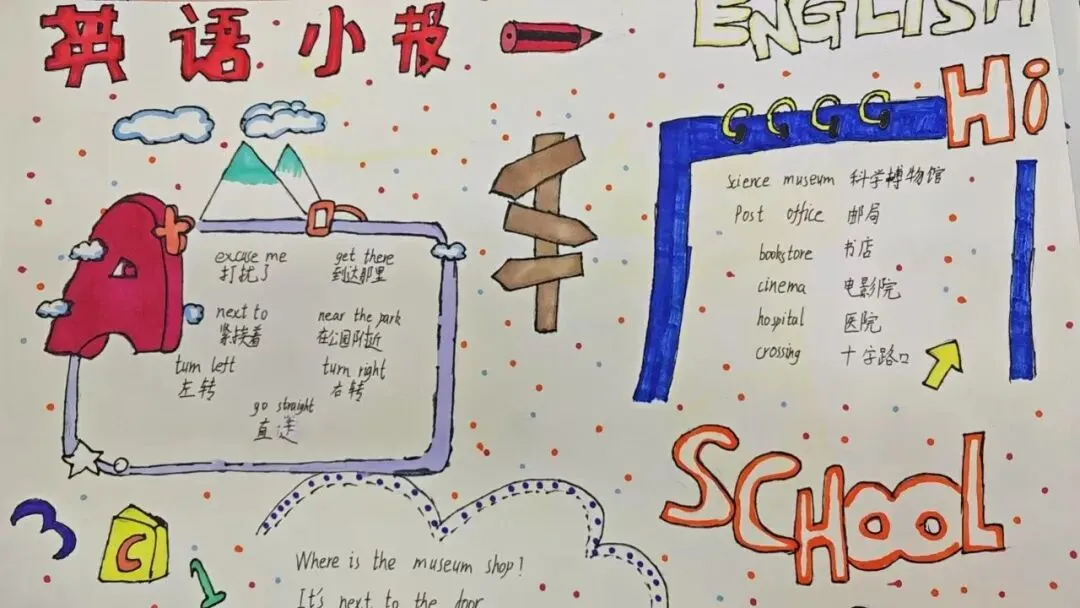 英语小报
ENGLISH
Hi
A
excuse me
打扰了
get there
到达那里
next to
紧挨着
near the park
在公园附近
turn left
左转
turn right
右转
go straight
直走
science museum 科学博物馆
Post office 邮局
bookstore 书店
cinema 电影院
hospital 医院
crossing 十字路口
SCHOOL
3
C
1
Where is the museum shop?
It's next to the door